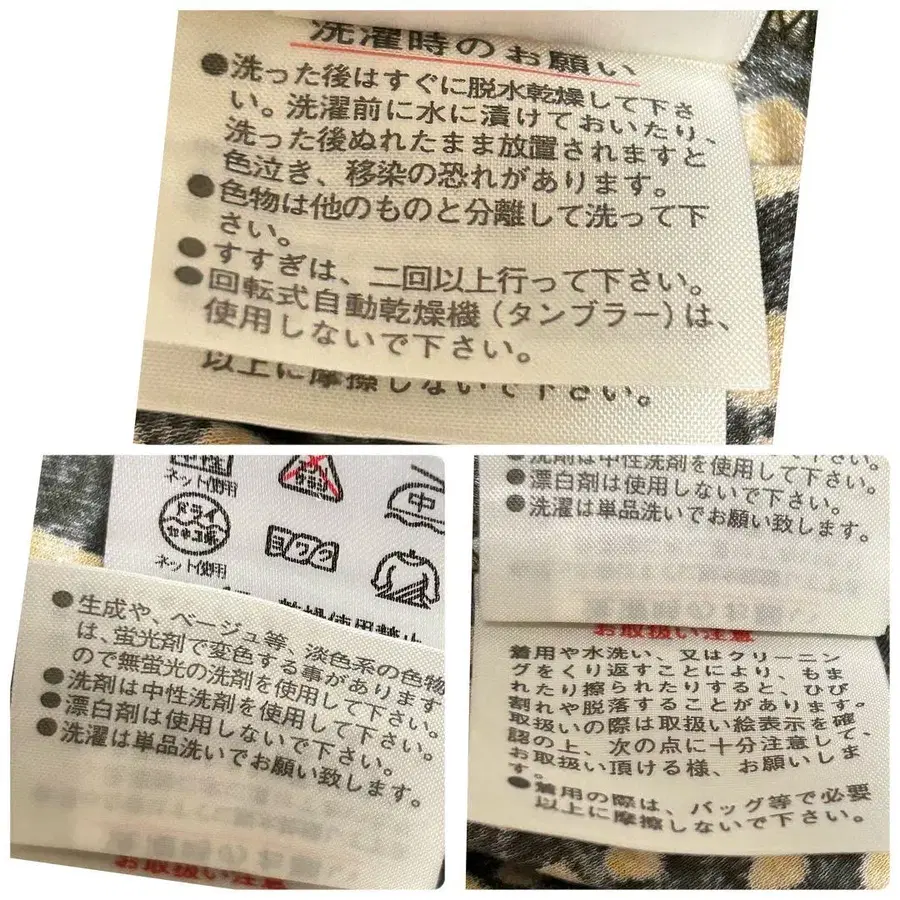 洗濯時のお願い
●洗った後はすぐに脱水乾燥して下さ
い。洗濯前に水に漬けておいたり、
洗った後ぬれたまま放置されますと
色泣き、移染の恐れがあります。
●色物は他のものと分離して洗って下
さい。
●すすぎは、二回以上行って下さい。
●回転式自動乾燥機(タンブラー)は、
使用しないで下さい。
以上に摩擦しないで下さい。
中性
ネット使用
サラシ
中
ドライ
ネット使用
ヨワク
乾燥使用禁止
●生成や、ベージュ等、淡色系の色物
は、蛍光剤で変色する事があります
ので無蛍光の洗剤を使用して下さい。
●洗剤は中性洗剤を使用して下さい。
●漂白剤は使用しないで下さい。
●洗濯は単品洗いでお願い致します。
お取扱い注意
●洗剤は中性洗剤を使用して下さい。
●漂白剤は使用しないで下さい。
●洗濯は単品洗いでお願い致します。
お取扱い注意
着用や水洗い、又はクリーニン
グをくり返すことにより、もま
れたり擦られたりすると、ひび
割れや脱落することがあります。
取扱いの際は取扱い絵表示を確
認の上、次の点に十分注意して、
お取扱い頂ける様、お願いしま
す。
●着用の際は、バッグ等で必要
以上に摩擦しないで下さい。